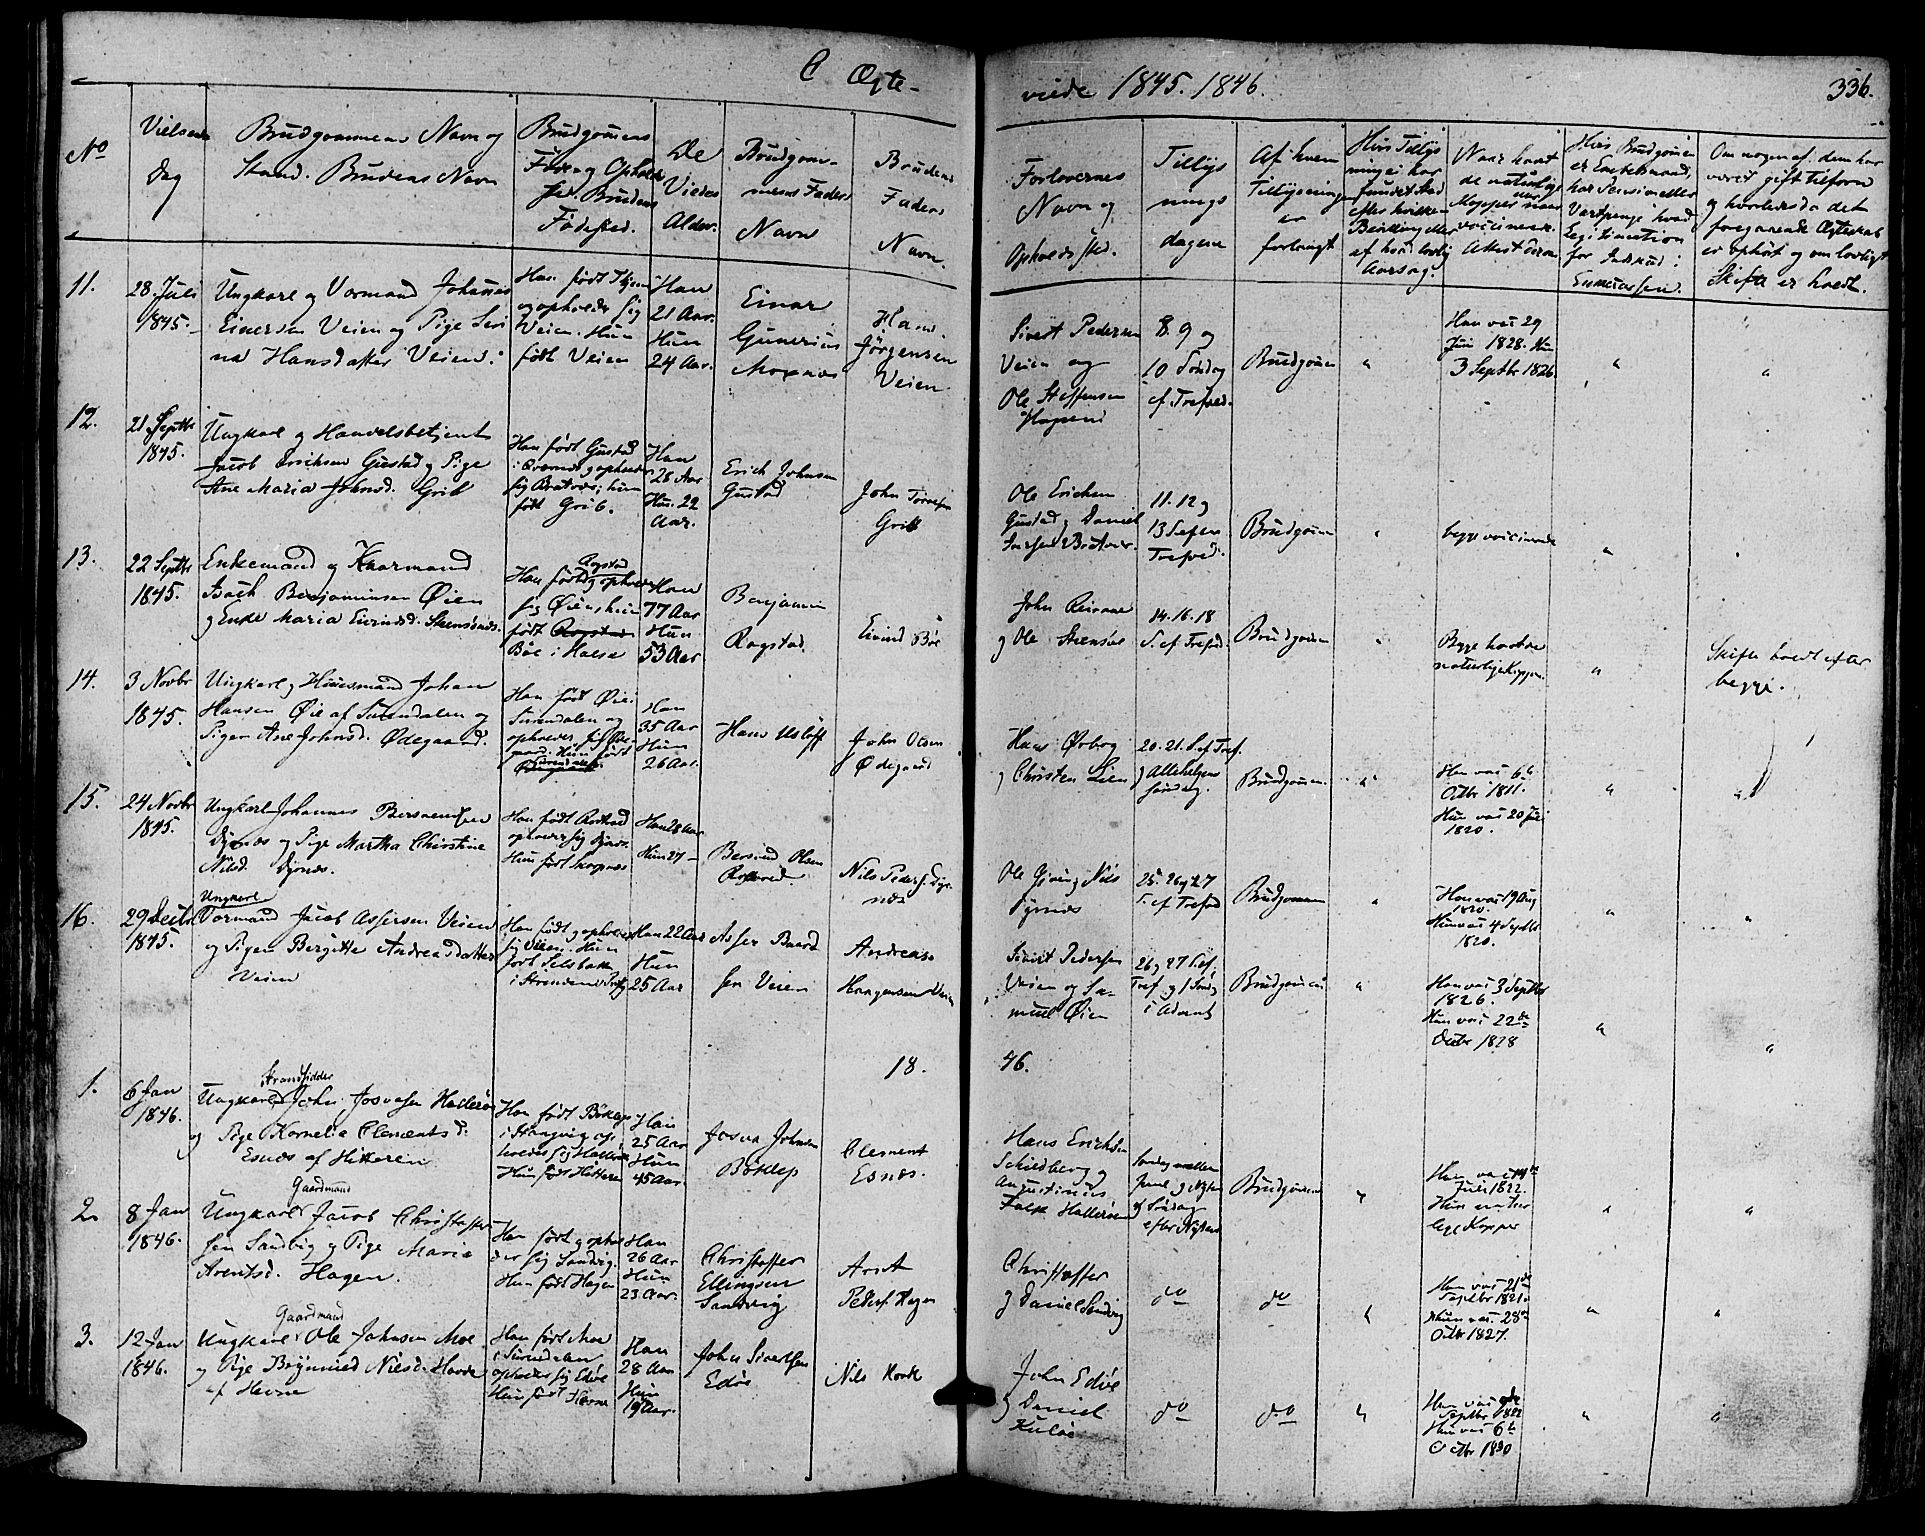 C Ægte-
viede 1845. 1846.
336.
No
Vielsens
dag
Brudgommens Navn og
Stand. Brudens Navn
Brudgomens
Føde og Opholds
sted. Brudens
Fødested.
De
Viedes
Alder.
Brudgom-
mens Faders
Navn
Brudens
Faders
Navn.
Forlovernes
Navn og
Opholdssted.
Tillys
nings
dagene
Af hvem
Tillysningen
er
forlangt
Naar havt
de naturlige
Kopper
vaccinerede
Hvis Brudgomen
er Enkemand,
Legitimation
for
Om nogen af dem har
været gift tilforn
og hvorledes da det
foregaaende Ægteskab
er ophørt og om lovligt
Skifte er holdt.
11.
28. Juli
1845.
Ungkarl og Vormand Johannes
Einersen Veien og Pige Seri
na Hansdatter Veien.
Han født
og opholder sig
Veien. Hun
født Veien
Han
21 Aar.
Hun
24 Aar.
Einar
Gunerius
Moxnæs
Hans
Jørgensen
Veien.
Sivert Pedersen
Veien og
Ole Steffensen
Hagen
8. 9 og
10 Søndag
ef. Trefred.
Brudgomen
"
Han vac 29
Juni 1828. Hun
3 Septbr 1826.
"
"
12.
21 Septbr
1845.
Ungkarl og Handelsbetjent
Jacob Erichsen Gustad og Pige
Ane Maria Johnsd. Grib
Han født Gustad
i og opholder
sig Bratvær; hun
født Grib.
Han
28 Aar
Hun. 22
Aar.
Erich Johnsen
Gustad
John
Grib
Ole Erichsen
Gustad og Daniel
Bratvær.
11. 12 og
13 S. efter
Trefred.
Brudgomen
"
begge vaccinerede
"
13.
22 Septbr
1845.
Enkemand og Kaarmand
Isach Benjaminsen Øien
og Enke Maria Eivindsd. Steensønæs.
Rogstad
Han født og opholder
sig Øien, hun
født Rogstad
Bøe i Halse
Han
77 Aar
Hun
53 Aar
Benjamin
Rogstad.
Eivind Bøe
John
og Ole Steensøe
14. 16. 18
S. ef Trefred.
Brudgomen
"
Begge havt de
naturlige Kopper.
"
Skifte holdt efter
begge.
14.
3 Novbr
1845.
Ungkarl og Huusmand Johan
Hansen Øie af Surendalen og
Pigen Ane Johnsd. Ødegaard.
Han født Øie i
Surendalen og
opholder sig Øde-
gaard. Hun født
Surendalen
Han
35 Aar
Hun
26 Aar.
Hans
John Olsen
Ødegaard
Hans Ørbog
og Christen Lien
20. 21. S. ef Tref.
og Allehelgens
søndag.
Brudgomen.
"
Han vac 6te
Octbr 1811.
Hun vac 20 Juli
1820.
"
"
15.
24 Novbr
1845.
Ungkarl Johannes Berswendsen
Dyrnæs og Pige Martha Christine
Nilsd. Dyrnæs.
Han født
opholder sig Dyrnæs.
Hun født
Han 28 Aar
Hun 27 –
Bersvend Olsen
Nils Peders. Dyr
næs
Ole og Nils
Dyrnæs
25. 26 og 27
S. ef Trefred
Brudgomen
"
Han vac 19 Aug
1820.
Hun vac 4 Septbr
1820.
"
"
16.
29 Decbr
1845.
Ungkarl
Vormand Jacob Assersen Veien
og Pigen Bergitte Andreasdatter
Veien
Han født og opholder
sig Veien. Hun
født Selsbakk
i Strinden
Han 22 Aar
Hun
25 Aar
Asser Baard
sen Veien
Andreas
Haagensen Veien
Sivert Pedersen
Veien og Sa-
muel Øien
26 og 27 S. ef.
Tref. og 1 Søndag
i Advent
Brudgomen
"
Han vac 3 Septbr
1826.
Hun vac 22de
Octbr 1828
"
"
18
46.
1.
6 Jan
1846.
Strandsidder
Ungkarl John Josvasen Hallerøe
og Pige Kornelia Clementsd.
Esnæs af Hitteren
Han født Bøklep
i Stangvig op-
holder sig Hallerøe
Hun født Hitteren
Han
25 Aar
Hun
45 Aar.
Josva Johnsen
Bøklep
Clement
Esnæs.
Hans Erichsen
Schiedberg og
Augustinus
Falck Hallerøen
Søndag mellem
Juul og Nytaar
og Søndag
efter Nytaar
Brudgomen
"
Han vac 14de
Juli 1822.
Hun natur
lige Kopper
"
"
2.
8 Jan
1846.
Gaardmand
Ungkarl Jacob Christoffer
sen Sandvig og Pige Maria
Arentsd. Hagen.
Han født og ophol
der sig Sandvig.
Hun født Hagen
Han
26 Aar
Hun
23 Aar.
Christoffer
Ellingsen
Sandvig
Arnt
Peders. Hagen
Christoffer
og Daniel Sandvig
do
do
"
Han vac 21de
Septbr 1821.
Hun vac. 28de
Octbr 1827.
"
"
3.
12 Jan
1846.
Gaardmand
Ungkarl Ole Johnsen Moe
og Pige Brynnild Nilsd. Havde
af Hevne
Han født Moe
i Surendalen
opholder sig Edøe
Hun født Hevne
Han
28 Aar
Hun
19 Aar.
John Sivertsen
Edøe
Nils
John Edøe
og Daniel
Kuløe
do
do
"
Han vac
Septbr 1822
Hun vac 6te
Octbr 1830
"
"